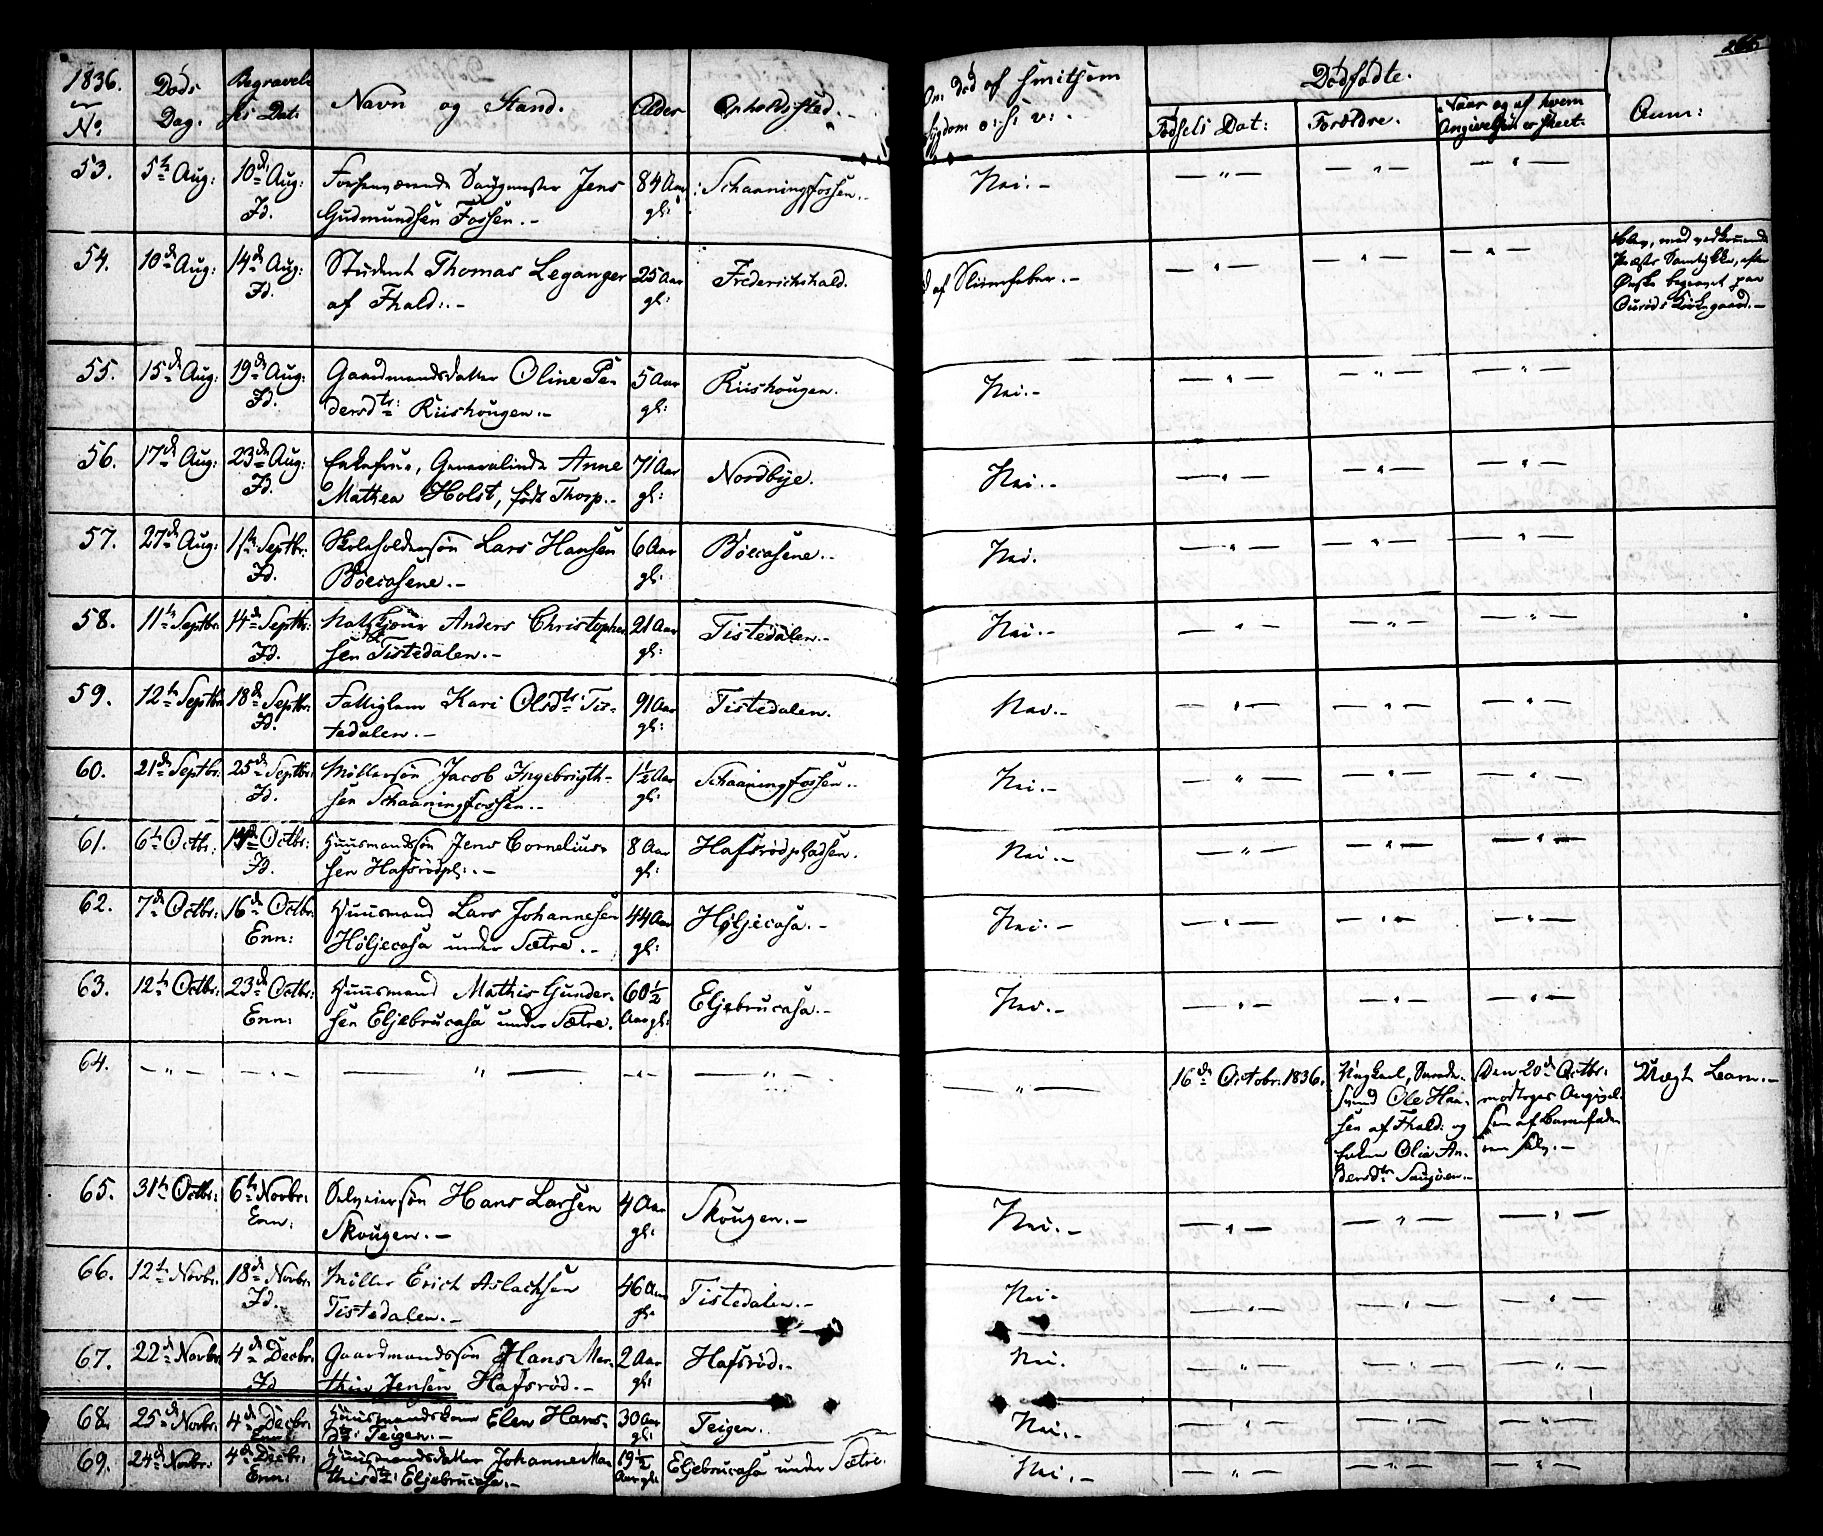 265
1836.
No
Døds
Dag.
Begravel-
ses Dat:
Navn og Stand.
Alder
Opholdssted.
Om Død af smitsom
Sygdom o: s: v:
Dødfødte.
Fødsels Dat:
Forældre.
Naar og af hvem
Angivelsen er skeet.
Anm:
53. 5te Aug: 10de Aug: Jens 84 Aar Schaaningfossen. Nei.
Id. Gudmundsen Fossen. gl:
54. 10de Aug: 14de Aug: Student Thomas Leganger 25 Aar Frederichshald. af Sliimfeber.
Id. af Fhald: gl:
Blev, med vedkommende
Præsts Samtykke, efter
Ønske begravet paa
Kirkegaard.
55. 15de Aug: 19de Aug: Gaardmandsdatter Oline Pe 5 Aar Riishougen. Nei.
Id. dersdtr: Riishougen. gl:
56. 17de Aug: 23de Aug: Enkefrue, Generalinde Anne 71 Aar Nordbye. Nei.
Id. Mathea Holst, født Thorp. gl:
57. 27de Aug: 1ste Septbr: Skoleholdersøn Lars Hansen 6 Aar Böecasene. Nei.
Id. Böecasene. gl:
58. 11te Septbr: 14de Septbr: Anders Christopher 21 Aar Tistedalen. Nei.
Id. sen Tistedalen. gl:
59. 12te Septbr 18de Septbr: Fattiglem Kari Olsdtr: Tis- 91 Aar Tistedalen. Nei.
Id. tedalen. gl:
60. 21de Septbr. 25de Septbr: Møllersøn Jacob Ingebrigth- 1½ Aar Schaaningfossen. Nei.
Id. sen Schaaningfossen. gl:
61. 6te Octbr: Octbr: Huusmandssøn Jens Cornelius- 8 Aar Hafsrödpladsen. Nei.
Id. sen Hafsrödpl: gl:
62. 7de Octbr: 16de Octbr. Huusmand Lars Johannesen 44 Aar Höljecasa. Nei.
Enn: Höljecasa under Sætre. gl:
63. 12te Octbr: 23de Octbr: Huusmand Mathis Gunder- 60½ Eljebrucasa. Nei.
Enn: sen Eljebrucasa under Sætre. Aar gl:
64. 16de Octobr: 1836. Ole Han- Den 20de Octbr: Uægte Barn.
sen af Fhald: og modtoges Angivel-
Olia An- sen af Barnefade-
dersdtr ren selv.
65. 31te Octbr: 6te Novbr: Hans Larsen 4 Aar Skougen. Nei.
Enn: Skougen. gl:
66. 12te Novbr: 18de Novbr: Møller Erich Aslachsen 46 Aar Tistedalen. Nei.
Id. Tistedalen. gl:
67. 22de Novbr 4de Decbr: Gaardmandssøn Hans Mar- 2 Aar Hafsröd. Nei.
Id thin Jensen Hafsröd. gl:
68. 25de Novbr: 4de Decbr: Huusmandskone Elen Hans- 30 Aar Teigen. Nei.
Enn: dtr: Teigen. gl:
69. 24de Novbr: 4de Decbr: Huusmandsdatter Johanne Ma- 19½ Eljebrucasa under Sætre. Nei.
Enn: thisdtr: Eljebrucasa. Aar gl: